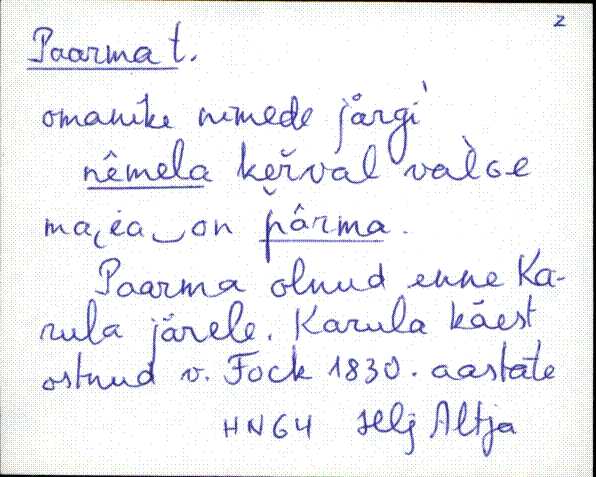 2
Paarma t.
omanike nimede järgi
nêmela keŗval valse
maja on pârma.
Paarma olnud enne Ka-
rula järele. Karula käest
ostnud v. Fock 1830. aastate
HN64 Hlj Altja